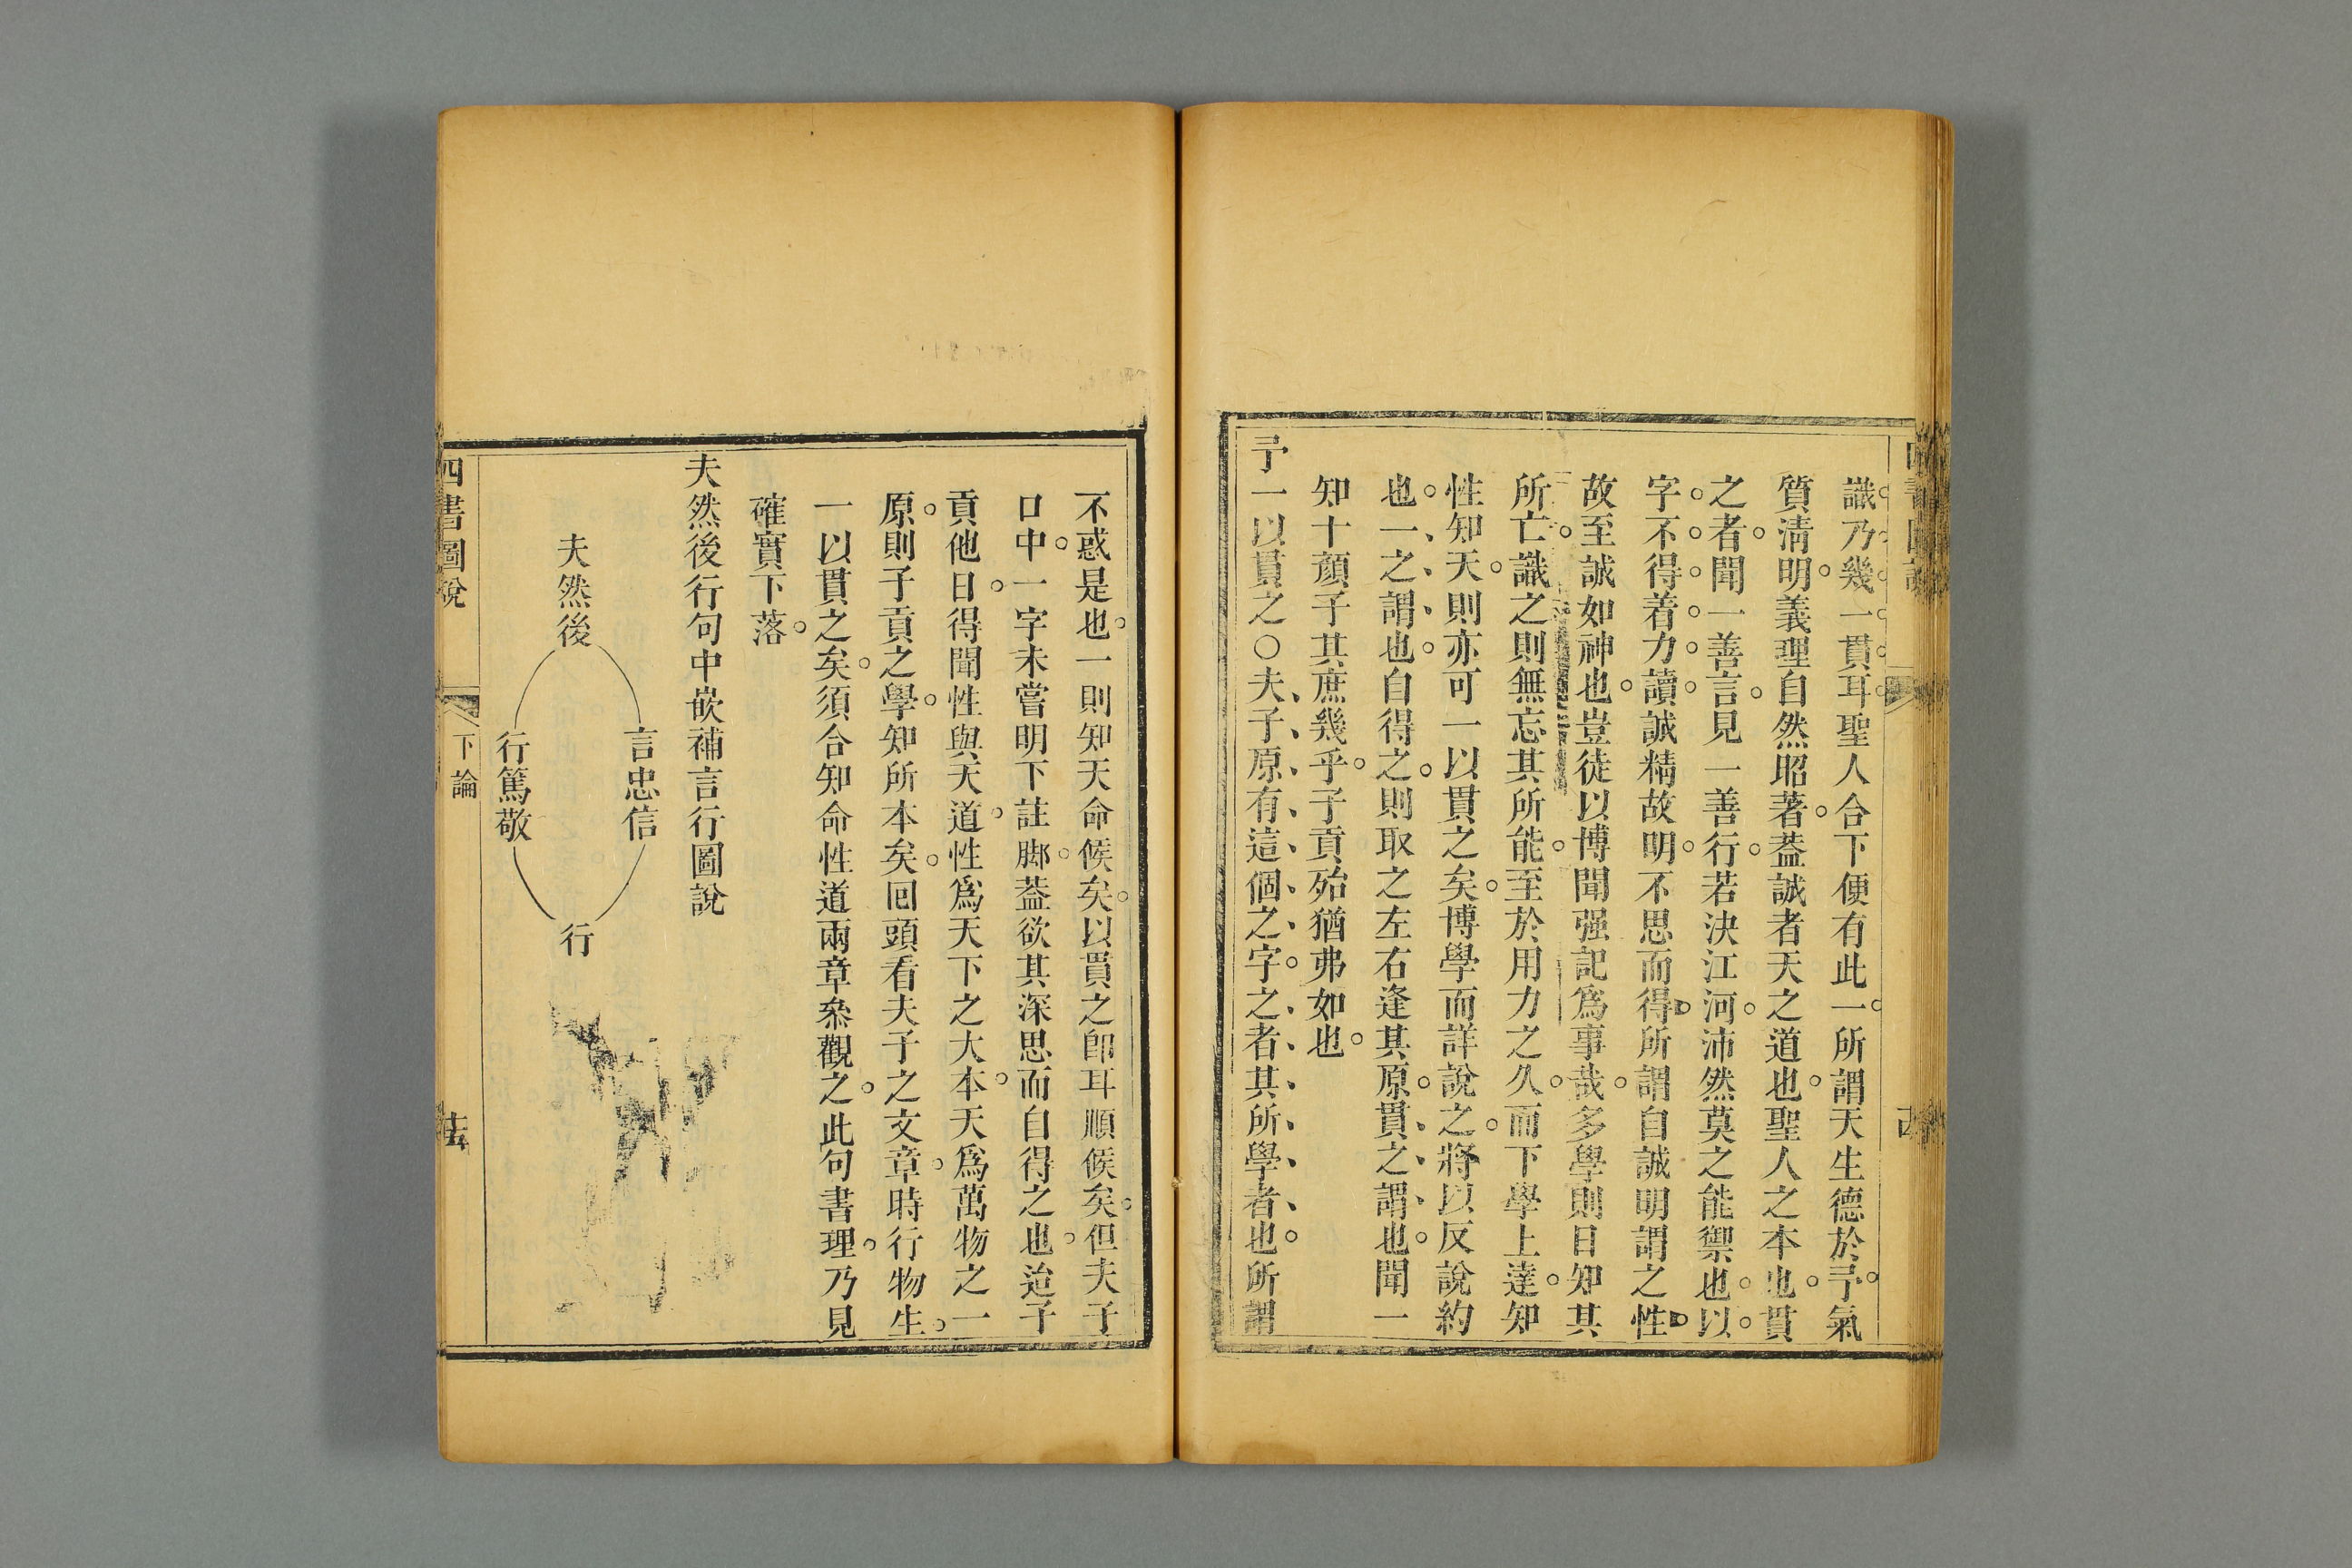 識乃幾一貫耳聖人合下便有此一所謂天生德於予氣
質清明義理自然昭著蓋誠者天之道也聖人之本也貫
之者聞一善言見一善行若決江河沛然莫之能禦也以
字不得着力讀誠精故明不思而得所謂自誠明謂之性
故至誠如神也豈徒以博聞强記爲事哉多學則日知其
所亡識之則無忘其所能至於用力之久而下學上達知
性知天則亦可一以貫之矣博學而詳說之將以反說約
也一之謂也自得之則取之左右逢其原貫之謂也聞一
知十顔子其庶幾乎子貢殆猶弗如也
予一以貫之○夫子原有這個之字之者其所學者也所謂
不惑是也一則知天命候矣以貫之卽耳順候矣但夫子
口中一字未嘗明下註脚蓋欲其深思而自得之也迨子
貢他日得聞性與天道性爲天下之大本天爲萬物之一
原則子貢之學知所本矣回頭看夫子之文章時行物生
一以貫之矣須合知命性道兩章叅觀之此句書理乃見
確實下落
夫然後行句中嵌補言行圖說
夫然後
言忠信
行篤敬
行
四書圖說
下論